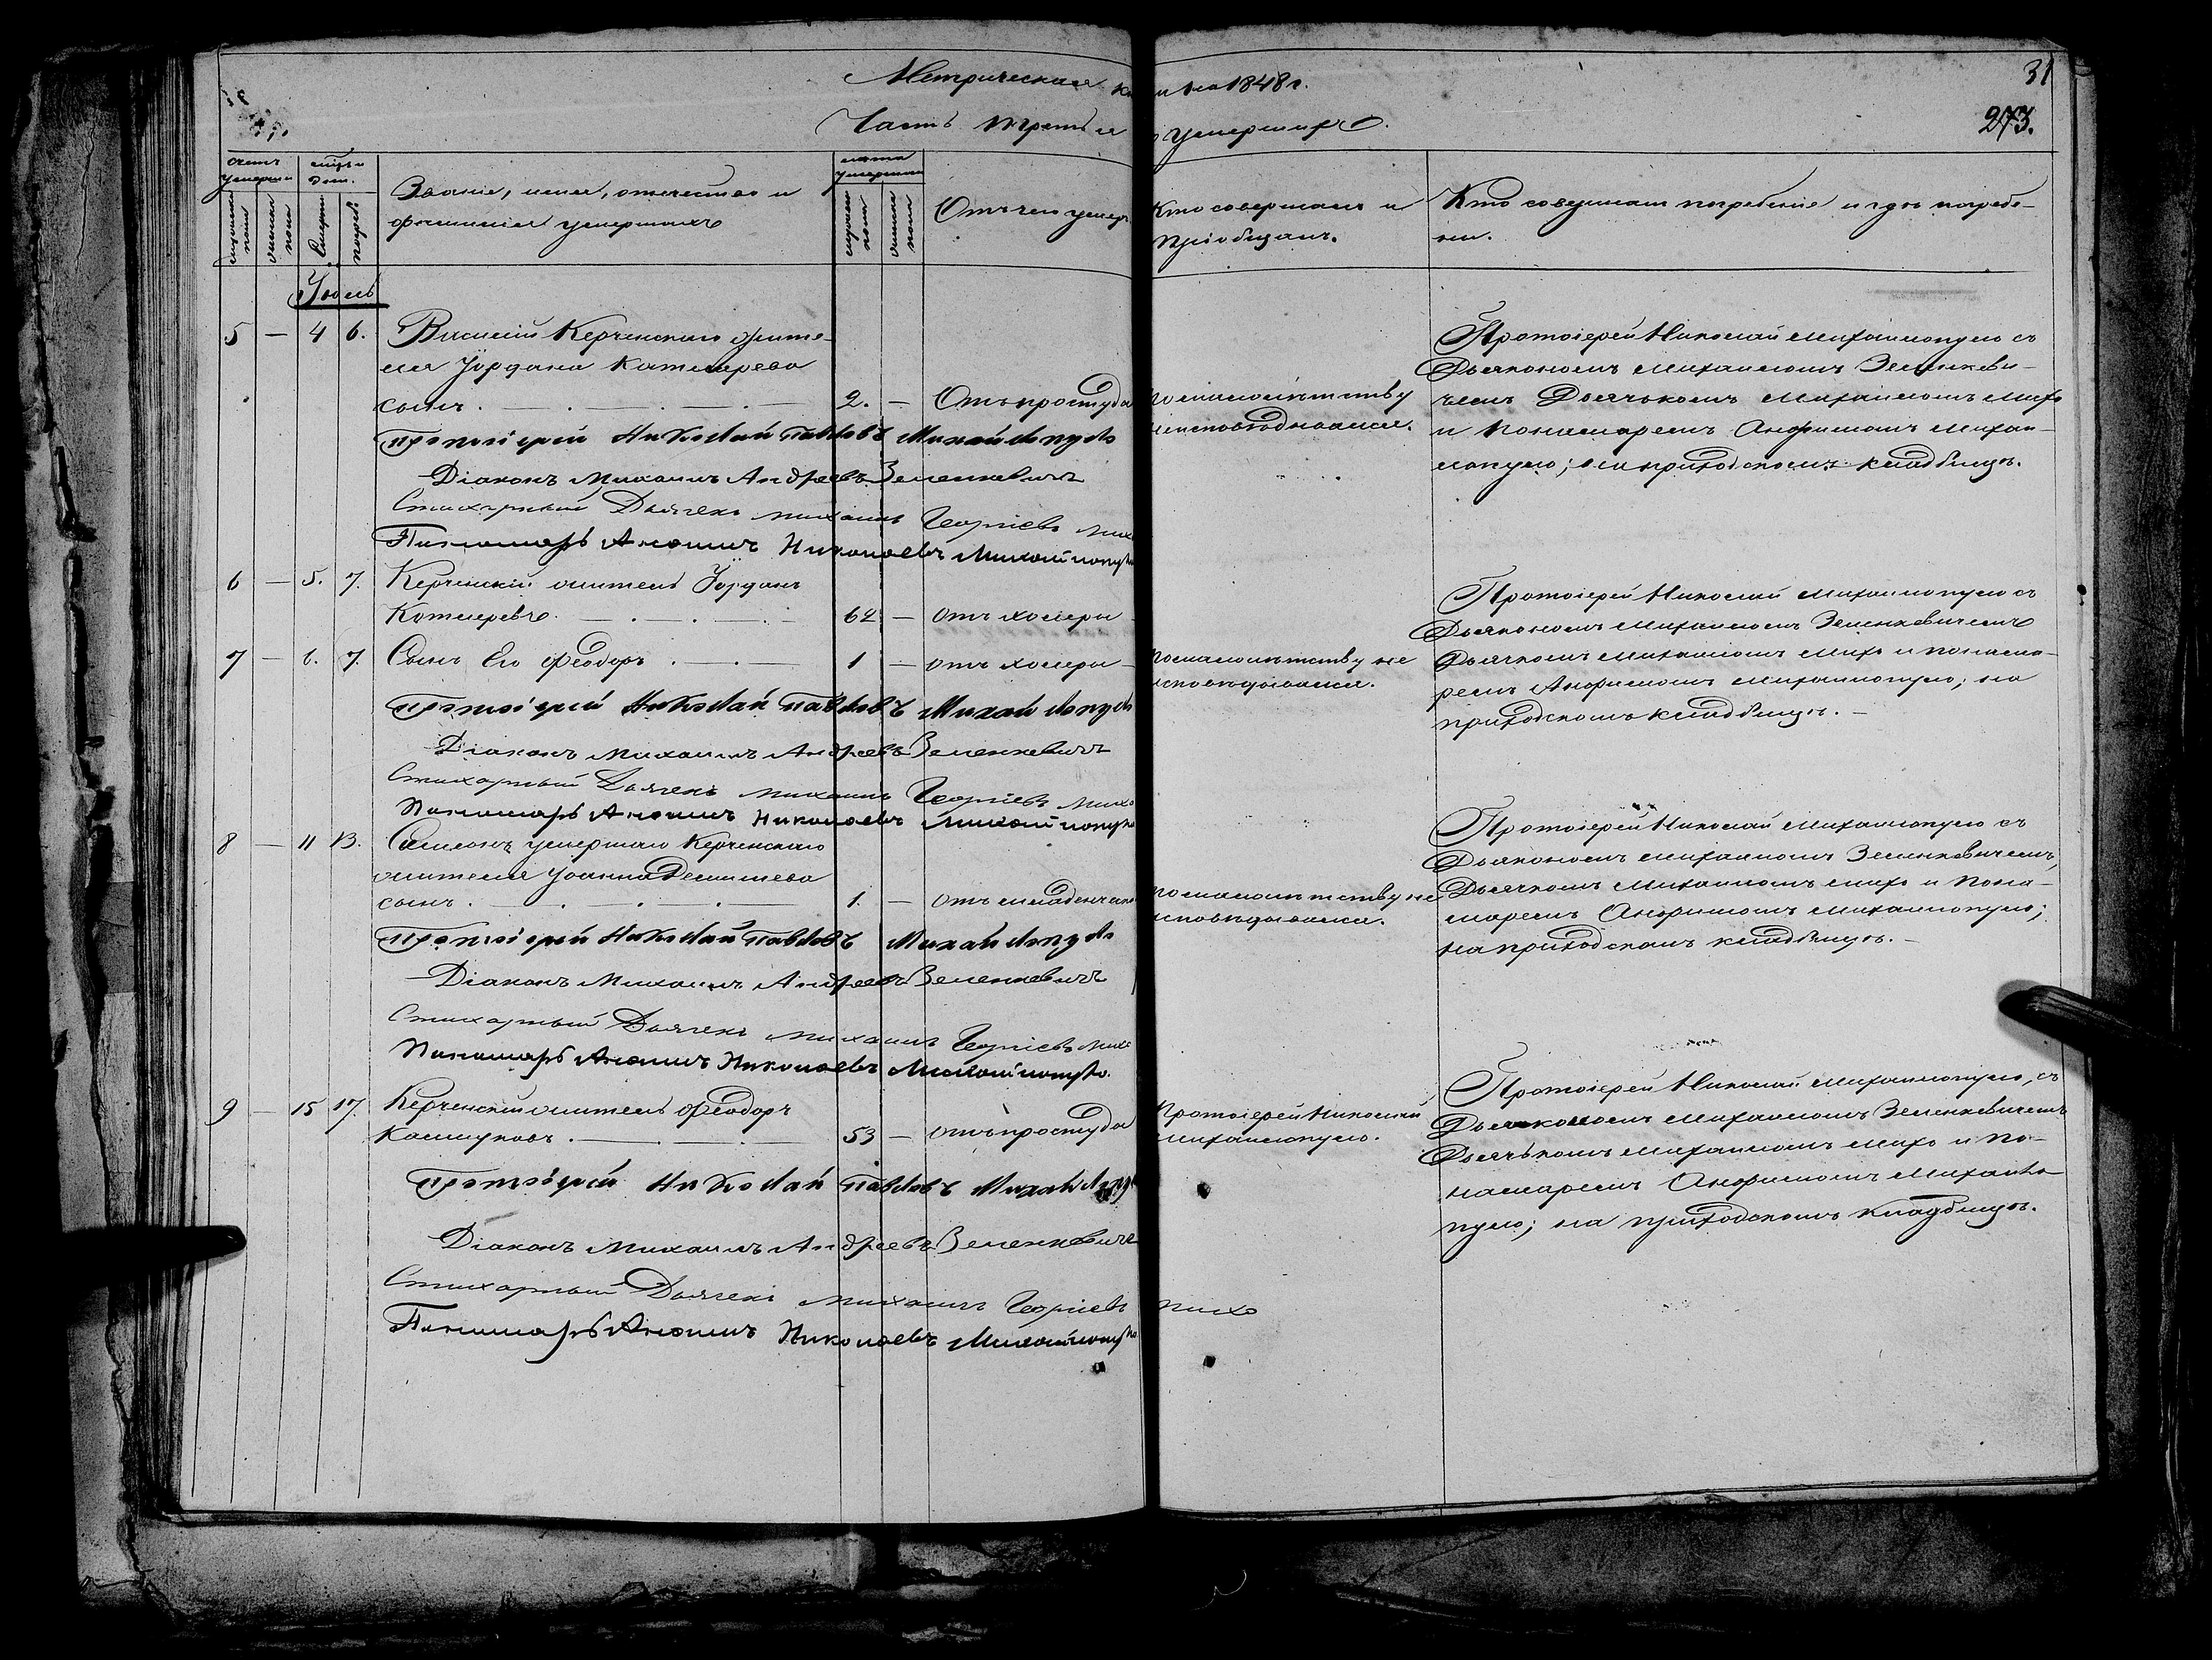 31
273.
Метрическая кни на 1848 г.
Часть третья о умершихъ.
счетъ умерши
мѣсъ и дни.
Званіе, имя, отечество и
фамилія умершихъ
лѣта умершихъ
Отъ чего умер
Кто совершалъ и
пріобщалъ.
Кто совершалъ погребеніе и гдѣ погребе-
ны.
мужеска пола
женска пола
Смерти
погреб.
мужеска пола
женска пола
Іюль
5 — 4 6. Василій Керченскаго жите-
ля Іордана Котлярева
сынъ. 2. — Отъ простуды
по малолѣтству
неисповѣдывался.
Протоіерей Николай Михаилопуло съ
Дьякономъ Михаиломъ Зеленкеви-
чемъ Дьячькомъ Михаиломъ Михо
и Пономаремъ Анфимомъ Михаи-
лопуло; на приходскомъ кладбищѣ.
Протоіерей Николай Павловъ Михайлопуло
Діаконъ Михаилъ Андреевъ Зеленкевичъ
Стихарный Дьячекъ Михаилъ Георгіевъ Михо
Пономарь Анфимъ Николаевъ Михайлопуло
6 — 5. 7. Керченскій житель Іорданъ
Котляревъ. 62 — отъ холеры
7 — 6. 7. Сынъ Его Феодоръ. 1 — отъ холеры
по малолѣтству не
исповѣдывался.
Протоіерей Николай Михаилопуло съ
Дьякономъ Михаиломъ Зеленкевичемъ
Дьячкомъ Михаиломъ Михо и понама-
ремъ Анфимомъ Михаилопуло; на
приходскомъ кладбищѣ. —
Протоіерей Николай Павловъ Михайлопуло
Діаконъ Михаилъ Андреевъ Зеленкевичъ
Стихарный Дьячекъ Михаилъ Георгіевъ Михо
Пономарь Анфимъ Николаевъ Михайлопуло
8 — 11 13. Симеонъ умершаго Керченскаго
жителя Іоанна
сынъ. 1. — отъ младенческ
по малолѣтству не
исповѣдывался.
Протоіерей Николай Михаилопуло съ
Дьякономъ Михаиломъ Зеленкевичемъ,
Дьячкомъ Михаиломъ Михо и Пона-
маремъ Анфимомъ Михаилопуло;
на приходскомъ кладбищѣ. —
Протоіерей Николай Павловъ Михайлопуло
Діаконъ Михаилъ Андреевъ Зеленкевичъ
Стихарный Дьячекъ Михаилъ Георгіевъ Михо
Пономарь Анфимъ Николаевъ Михайлопуло.
9 — 15 17. Керченскій житель Феодоръ
53 — отъ простуды
Протоіерей Николай
Михаилопуло.
Протоіерей Николай Михаилопуло, съ
Дьякономъ Михаиломъ Зеленкевичемъ
Дьячькомъ Михаиломъ Михо и По-
намаремъ Анфимомъ Михаило
пуло; на приходскомъ кладбищѣ.
Протоіерей Николай Павловъ Михайлопуло
Діаконъ Михаилъ Андреевъ Зеленкевичъ
Стихарный Дьячекъ Михаилъ Георгіевъ Михо
Пономарь Анфимъ Николаевъ Михайлопуло